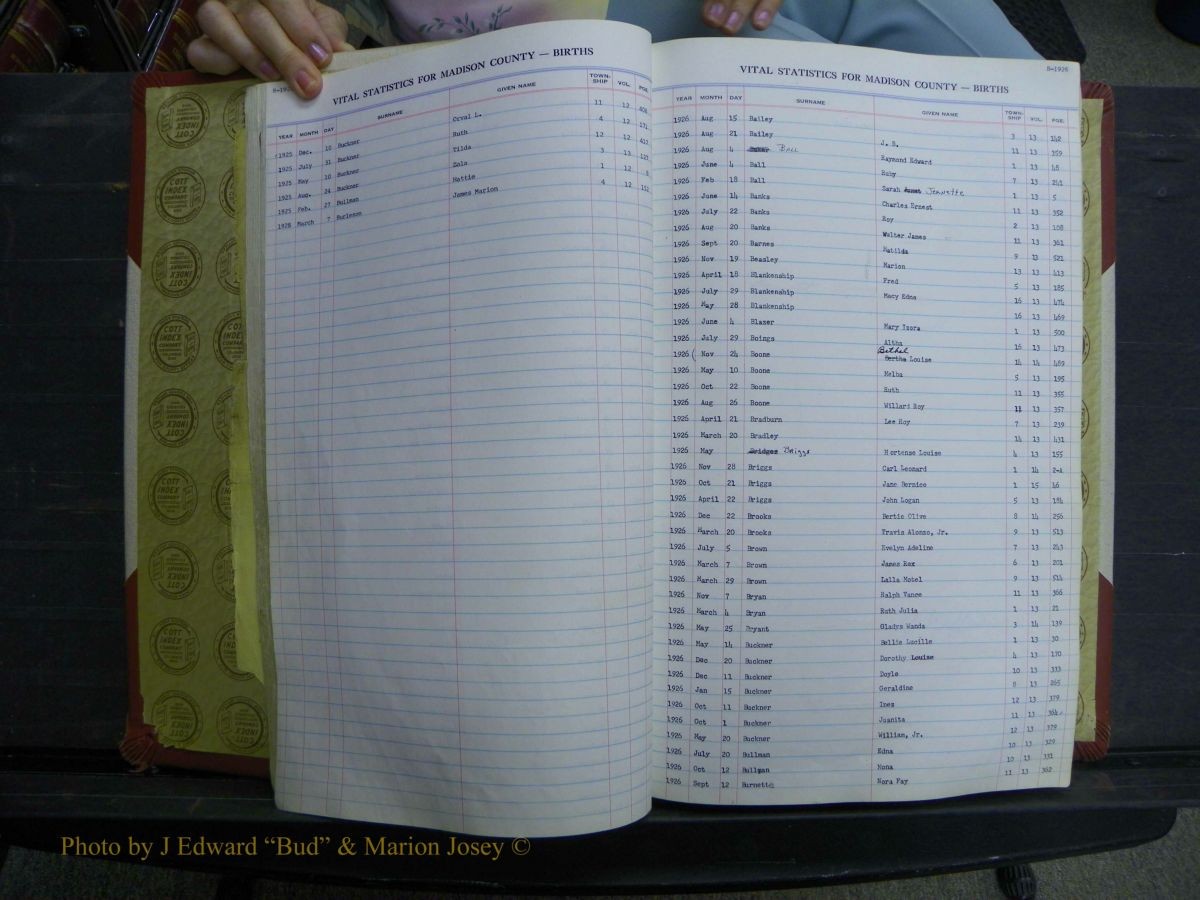 VITAL STATISTICS FOR MADISON COUNTY — BIRTHS
YEAR MONTH DAY SURNAME GIVEN NAME TOWN-SHIP VOL. PGE.
1925 Dec. 10 Buckner Orval L. 11 12 408
1925 July 31 Buckner Ruth 4 12 171
1925 May 10 Buckner Tilda 12 12 412
1925 Aug. 24 Buckner Zola 3 13 127
1925 Feb. 27 Bullman Hattie 1 12 8
1926 March 7 Burleson James Marion 4 12 152
B-1926
VITAL STATISTICS FOR MADISON COUNTY — BIRTHS
YEAR MONTH DAY SURNAME GIVEN NAME TOWN-SHIP VOL. PGE.
1926 Aug 15 Bailey 3 13 142
1926 Aug 21 Bailey J. B. 11 13 359
1926 Aug 4 Ball Raymond Edward 1 13 48
1926 June 4 Ball Ruby 7 13 241
1926 Feb 18 Ball Sarah Jeanette 1 13 5
1926 June 14 Banks Charles Ernest 11 13 352
1926 July 22 Banks Roy 2 13 108
1926 Aug 20 Banks Walter James 11 13 361
1926 Sept 20 Barnes Matilda 9 13 521
1926 Nov 19 Beasley Marion 13 13 413
1926 April 18 Blankenship Fred 5 13 185
1926 July 29 Blankenship Macy Edna 16 13 474
1926 May 28 Blankenship 16 13 469
1926 June 4 Blazer Mary Izora 1 13 500
1926 July 29 Boings Altha 16 13 473
1926 ( Nov 24 Boone Bethel Bertha Louise 14 14 489
1926 May 10 Boone Melba 5 13 195
1926 Oct 22 Boone Ruth 11 13 355
1926 Aug 26 Boone Willard Roy 11 13 357
1926 April 21 Bradburn Lee Roy 7 13 239
1926 March 20 Bradley 14 13 431
1926 May Bridges Briggs Hortense Louise 4 13 155
1926 Nov 28 Briggs Carl Leonard 1 14 2-4
1926 Oct 21 Briggs Jane Bernice 1 15 46
1926 April 22 Briggs John Logan 5 13 184
1926 Dec 22 Brooks Bertie Clive 8 14 256
1926 March 20 Brooks Travis Alonzo, Jr. 9 13 513
1926 July 5 Brown Evelyn Adeline 7 13 243
1926 March 7 Brown James Rex 6 13 201
1926 March 29 Brown Lalla Motel 9 13 514
1926 Nov 7 Bryan Ralph Vance 11 13 366
1926 March 4 Bryan Ruth Julia 1 13 21
1926 May 25 Bryant Gladys Wanda 3 14 139
1926 May 14 Buckner Bellie Lucille 1 13 30
1926 Dec 20 Buckner Dorothy Louise 4 13 170
1926 Dec 11 Buckner Doyle 10 13 333
1926 Jan 15 Buckner Geraldine 8 13 265
1926 Oct 11 Buckner Ines 12 13 379
1926 Oct 1 Buckner Juanita 11 13 364
1926 May 20 Buckner William, Jr. 12 13 379
1926 July 20 Bullman Edna 10 13 329
1926 Oct 12 Bullman Nona 10 13 331
1926 Sept 12 Burnette Nora Fay 11 13 362
COTT INDEX COMPANY
Photo by J Edward “Bud” & Marion Josey ©